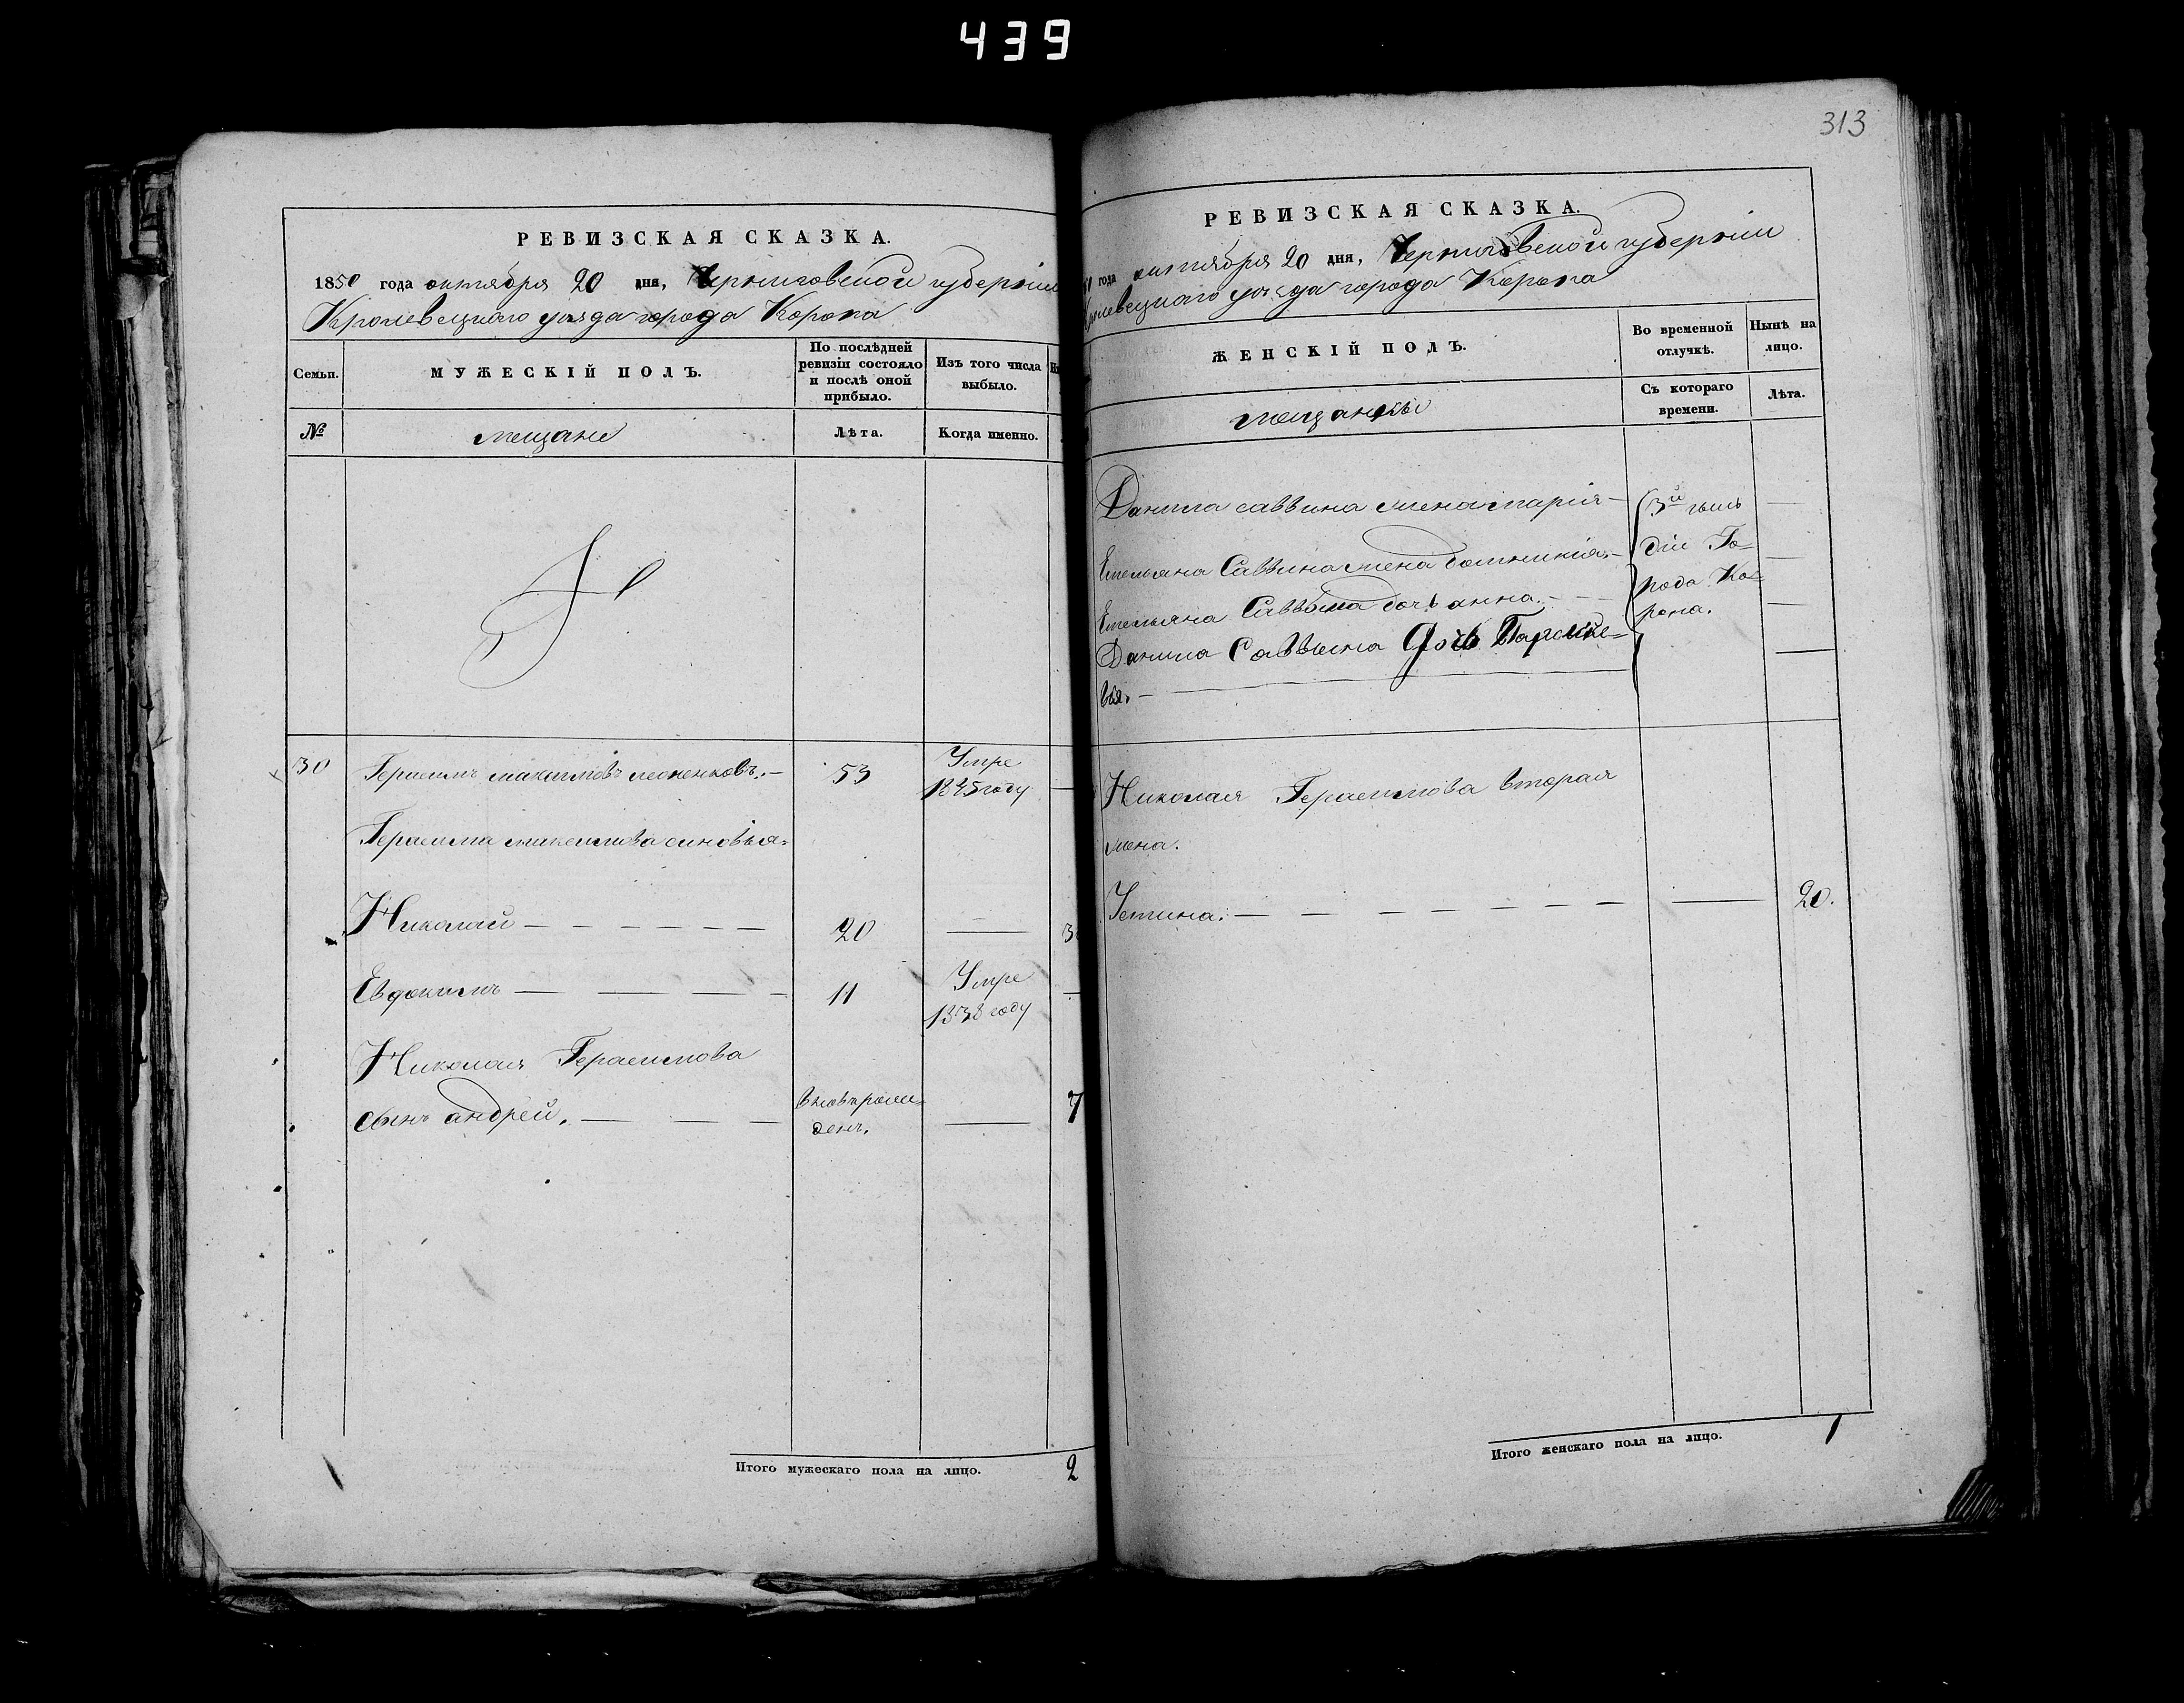 439
РЕВИЗСКАЯ СКАЗКА.
1850 года октября 20 дня, Черниговской губерніи
Кролевецкаго уезда города Коропа
Семьи.
МУЖЕСКІЙ ПОЛЪ.
По послѣдней
ревизіи состояло
и послѣ оной
прибыло.
Изъ того числа
выбыло.
№
мещане
Лѣта.
Когда именно.
30
Герасимъ максимовъ леоненковъ.
53
Умре
1845 году
Герасима максимова синовья.
Николай
20
Евдокимъ
11
Умре
1838 году
Николая Герасимова
сынъ андрей.
вновь рож-
денъ.
7
Итого мужескаго пола на лицо.
2
313
РЕВИЗСКАЯ СКАЗКА.
года октября 20 дня, Черниговской губерніи
уезда города Коропа
ЖЕНСКІЙ ПОЛЪ.
Во временной
отлучкѣ.
Нынѣ на
лицо.
мещанки
Съ котораго
времени.
Лѣта.
Данила саввина жена марія
Емельяна Саввина жена домникія.
Емельяна Саввина дочь анна.
Данила Саввина дочь Параске-
вія.
(3й гиль
діи Го-
рода Ко-
ропа.
Николая Герасимова вторая
жена.
Устина.
20.
Итого женскаго пола на лицо.
1